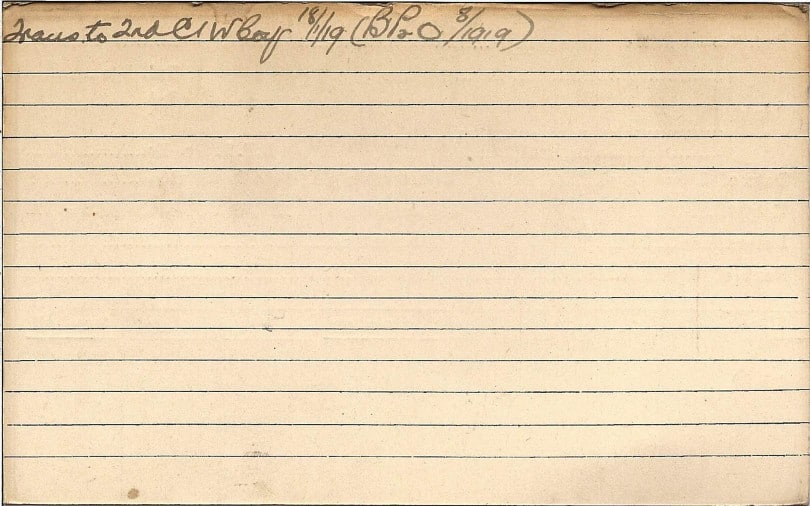 Trans to 2nd C I W Coy 18/1/19 (B Pt O 8/1919)